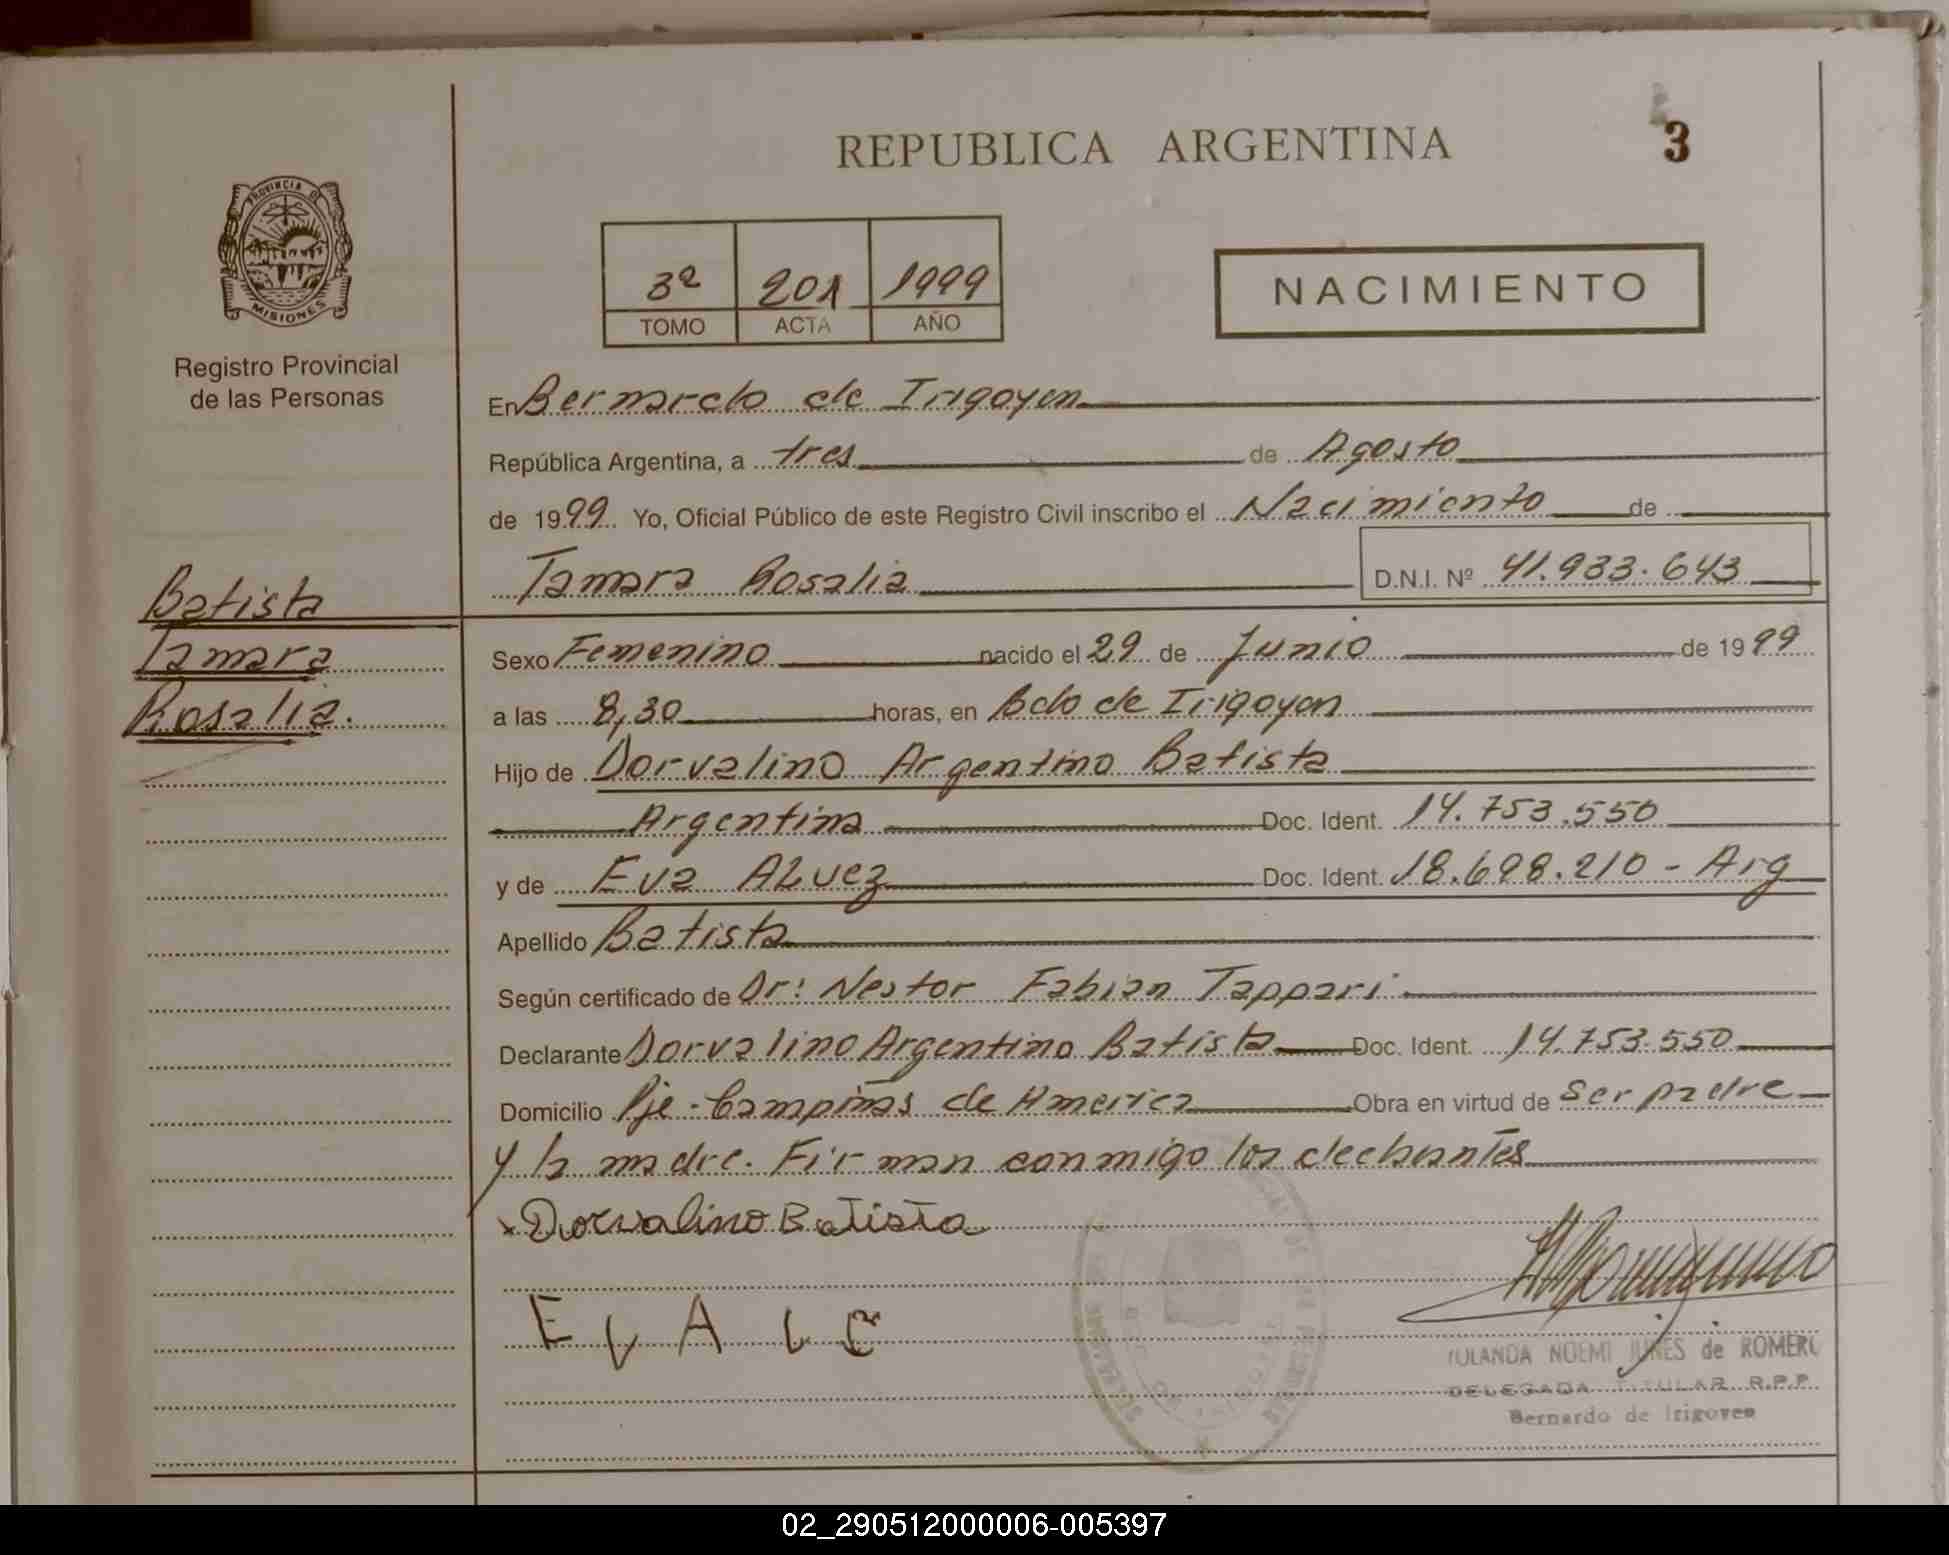 REPUBLICA ARGENTINA
3
PROVINCIA DE
MISIONES
Registro Provincial
de las Personas
3º 201 1999
TOMO ACTA AÑO
NACIMIENTO
En Bernardo de Irigoyen
República Argentina, a tres de Agosto
de 1999 Yo, Oficial Público de este Registro Civil inscribo el Nacimiento de
Tamara Rosalia D.N.I. Nº 41.933.643
Batista
Tamara
Rosalia.
Sexo Femenino nacido el 29 de Junio de 1999
a las 8,30 horas, en Bdo de Irigoyen
Hijo de Dorvalino Argentino Batista
Argentina Doc. Ident. 14.753.550
y de Eva ALvez Doc. Ident. 18.698.210 - Arg
Apellido Batista
Según certificado de Dr: Nestor Fabian Tappari
Declarante Dorvalino Argentino Batista Doc. Ident. 14.753.550
Domicilio Pje - Campiñas de America Obra en virtud de ser padre
y la madre. Firman conmigo los declarantes
x Dorvalino Batista
E V A L C
YOLANDA NOEMI JUNES de ROMERO
DELEGADA TITULAR R.P.P.
Bernardo de Irigoyen
02_290512000006-005397